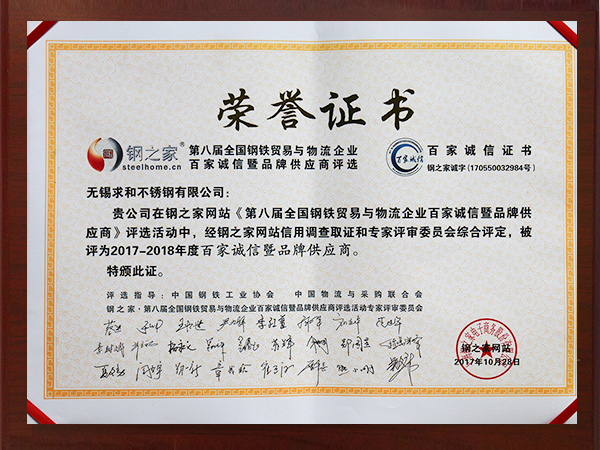 荣誉证书
钢之家
steelhome.cn
第八届全国钢铁贸易与物流企业
百家诚信暨品牌供应商评选
百家诚信
百家诚信证书
钢之家诚字（170550032984号）
无锡求和不锈钢有限公司：
贵公司在钢之家网站《第八届全国钢铁贸易与物流企业百家诚信暨品牌供
应商》评选活动中，经钢之家网站信用调查取证和专家评审委员会综合评定，被
评为2017-2018年度百家诚信暨品牌供应商。
特颁此证。
评选指导：中国钢铁工业协会 中国物流与采购联合会
钢之家·第八届全国钢铁贸易与物流企业百家诚信暨品牌供应商评选活动专家评审委员会
钢之家网站
2017年10月28日